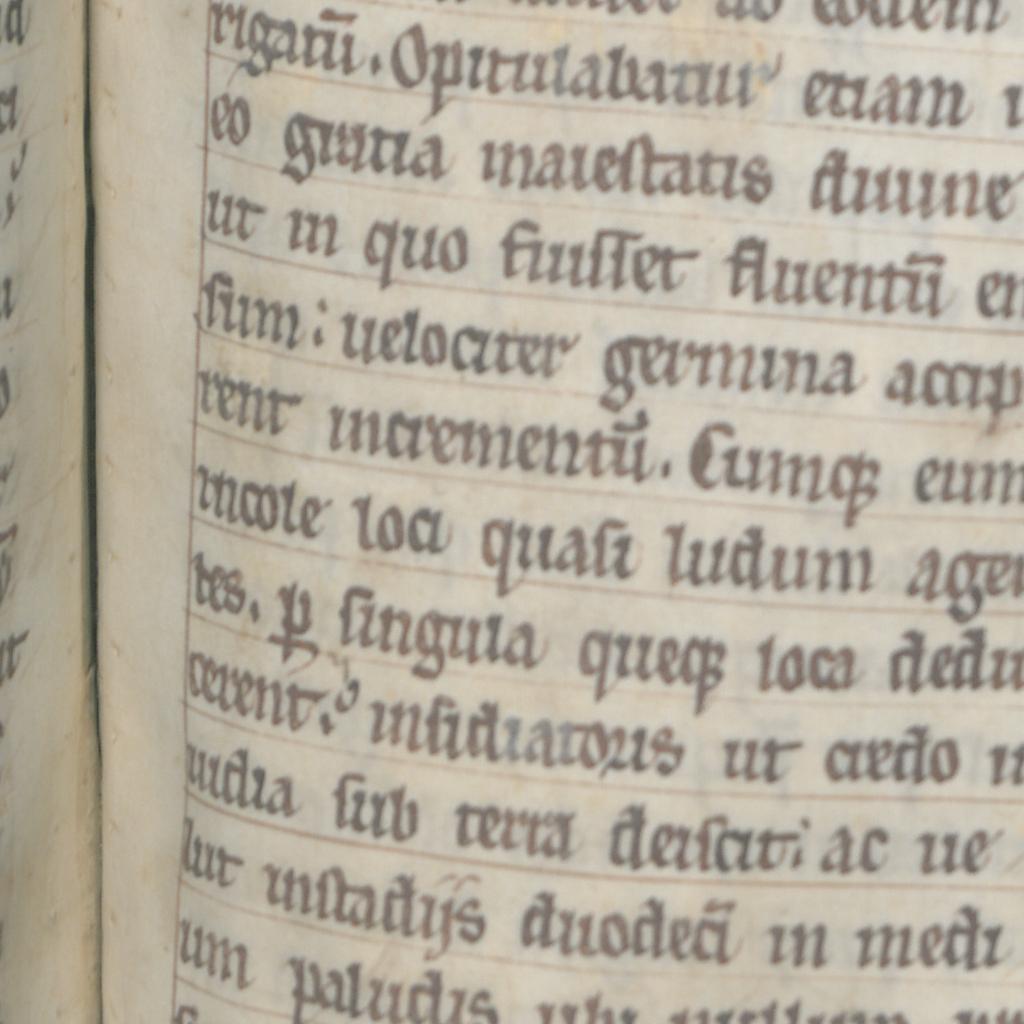 ab eodem
rigatū. Opitulabatur etiam
eo gratia maiestatis diuine
ut in quo fuisset fluentū
sum: uelociter germina accip
rent incrementū. Cumqꝫ eum
incole loci quasi ludum agen
tes. ꝑ singula queqꝫ loca dedu
cerent: insidiatoris ut credo
uidia sub terra deiscit: ac ue
lut instadijs duodecī in medi
um paludis ubi